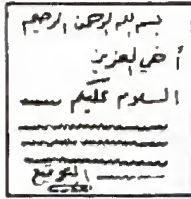 بسم الله الرحمن الرحيم
أخي العزيز
السلام عليكم
التوقيع